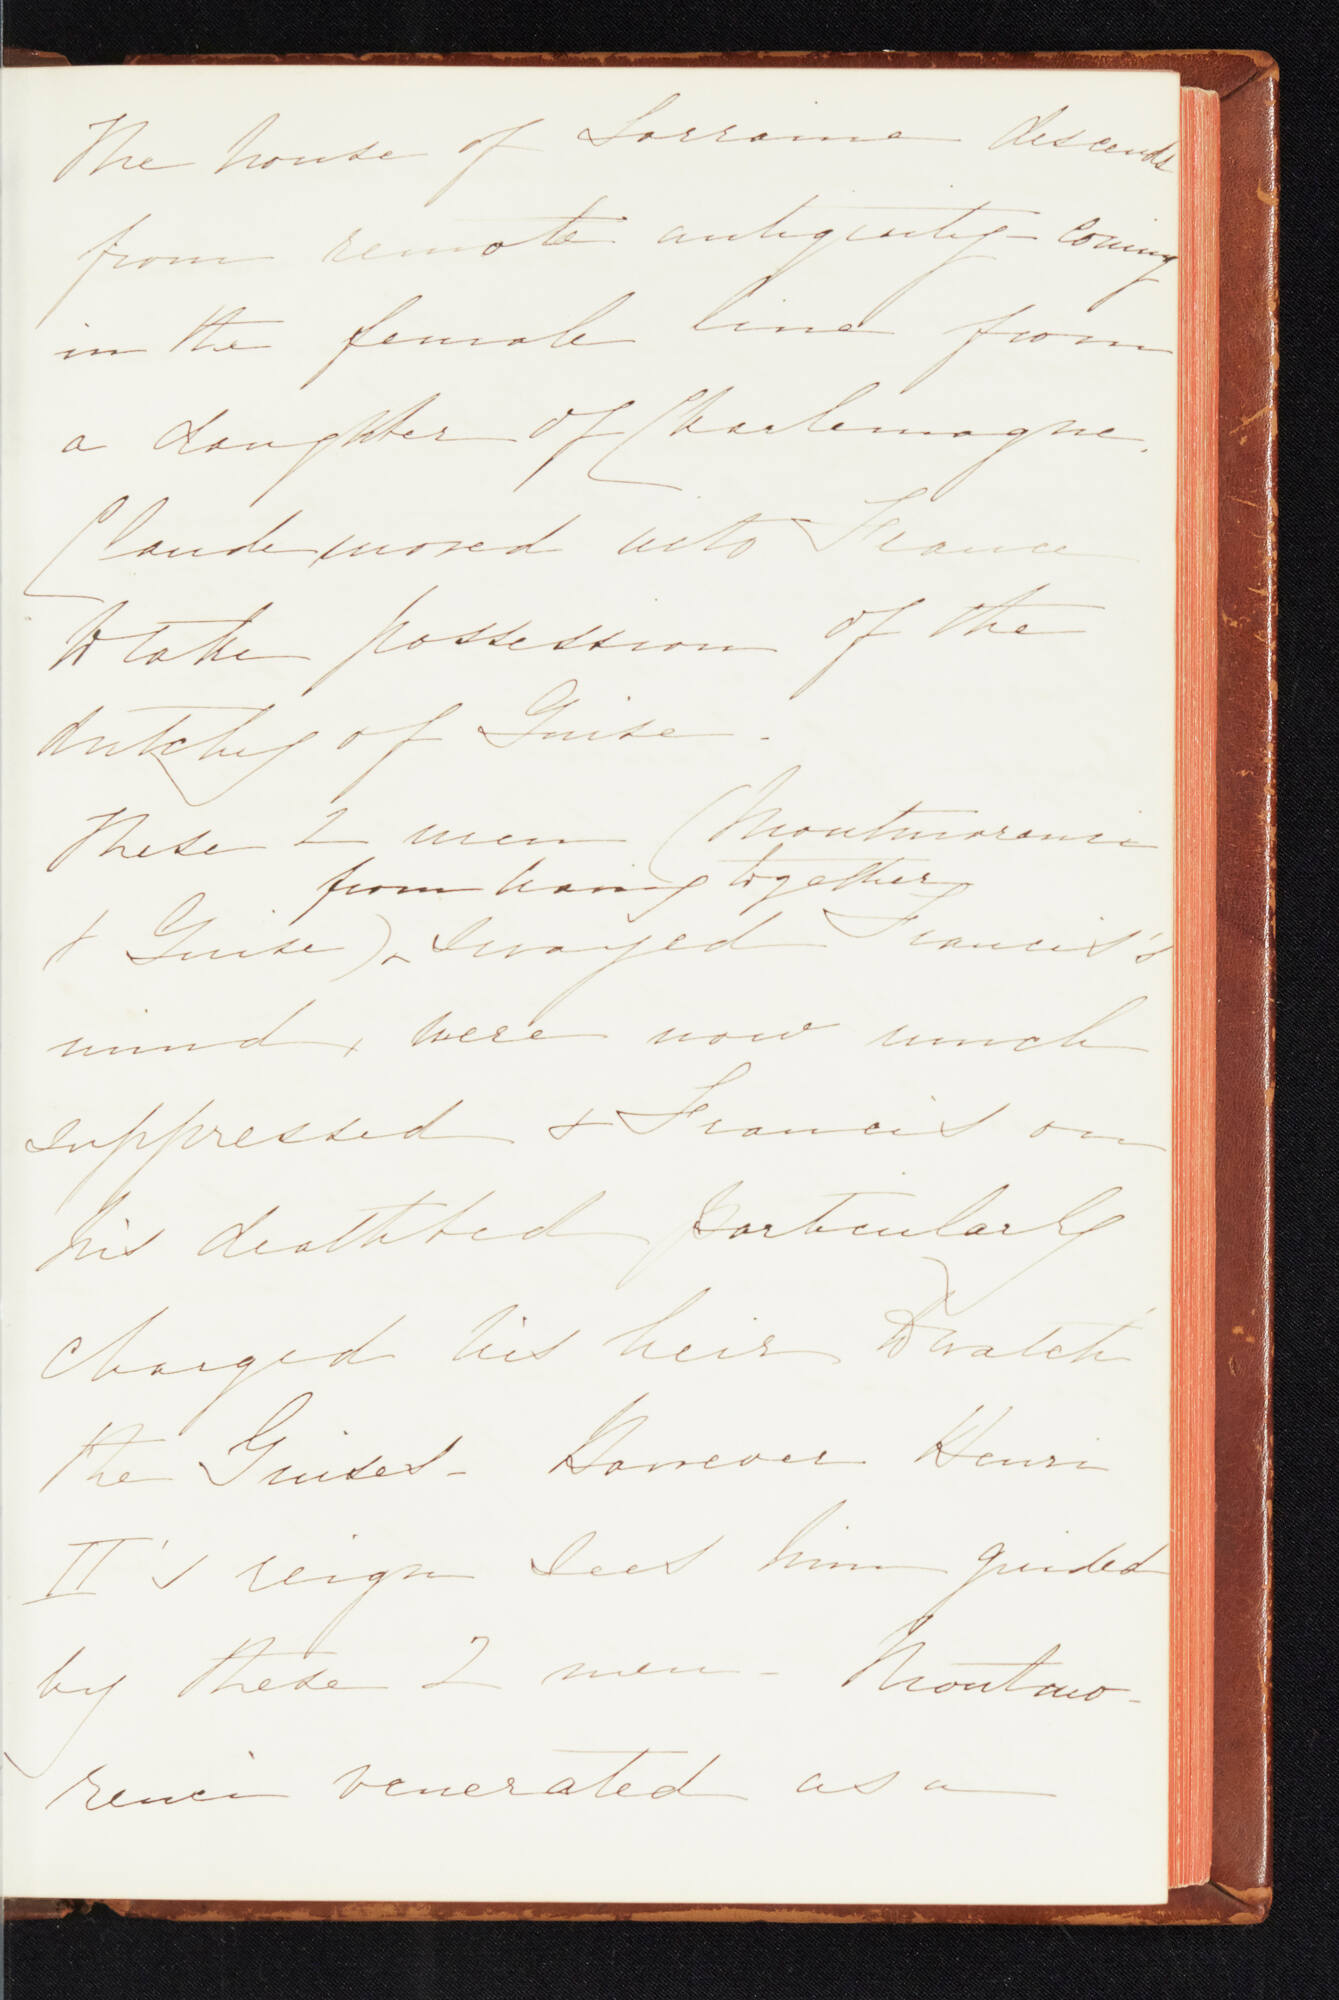 The house of Lorraine descends
from remote antiquity - coming
in the female line from
a daughter of Charlemagne.
Claude moved into France
to take possession of the
dutchy of Guise.
These 2 men (Montmorenci
from having together
& Guise) swayed Francis's
mind, were now much
suppressed & Francis on
his deathbed particularly
charged his heir to watch
the Guises - However Henri
II's reign sees him guided
by these 2 men - Montmo-
renci venerated as a